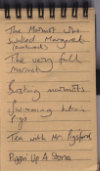 The Marmot Who
Looked Margaret
The very full
Marmot
Boating marmots
Swimming with
frogs
Tea with Mr. Pigsford
Piggin Up A Storm